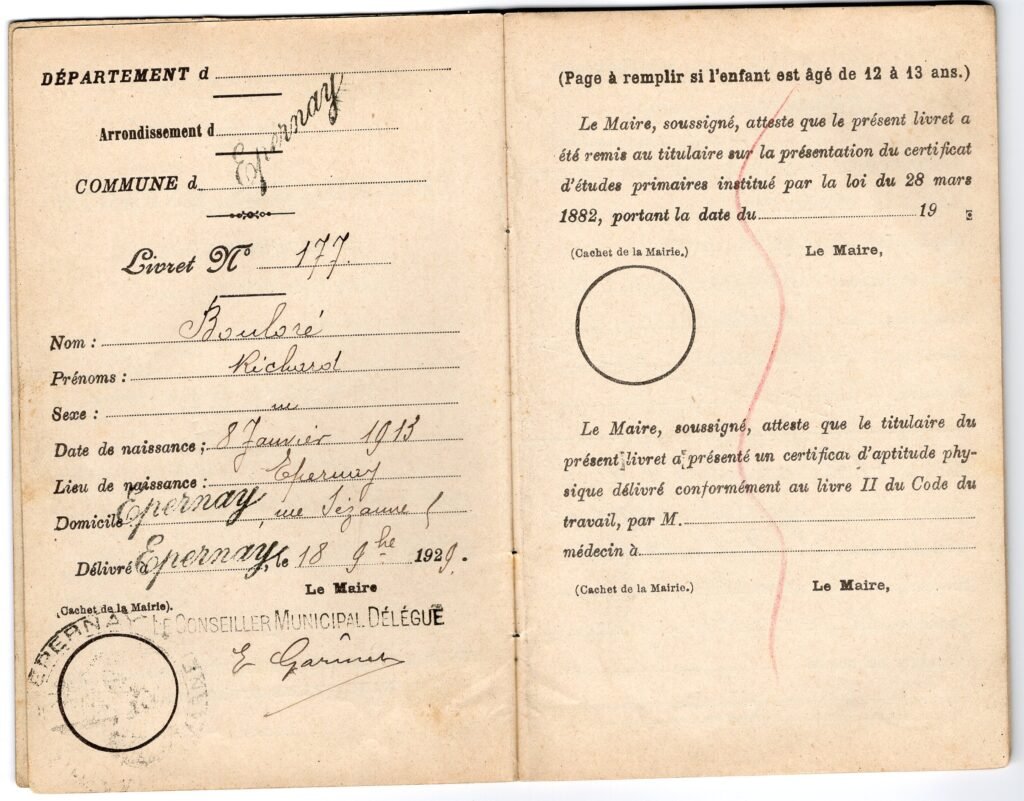 DÉPARTEMENT d
Arrondissement d
Epernay
COMMUNE d
Livret No 177.
Nom : Bouloré
Prénoms : Richard
Sexe : m
Date de naissance : 8 Janvier 1913
Lieu de naissance : Epernay
Domicile Epernay, rue Sézanne
Délivré à Epernay, le 18 9bre 1929.
Le Maire
(Cachet de la Mairie).
LE CONSEILLER MUNICIPAL DÉLÉGUÉ
EPERNAY
(Page à remplir si l'enfant est âgé de 12 à 13 ans.)
Le Maire, soussigné, atteste que le présent livret a
été remis au titulaire sur la présentation du certificat
d'études primaires institué par la loi du 28 mars
1882, portant la date du 19
(Cachet de la Mairie.) Le Maire,
Le Maire, soussigné, atteste que le titulaire du
présent livret a présenté un certificat d'aptitude phy-
sique délivré conformément au livre II du Code du
travail, par M.
médecin à
(Cachet de la Mairie.) Le Maire,